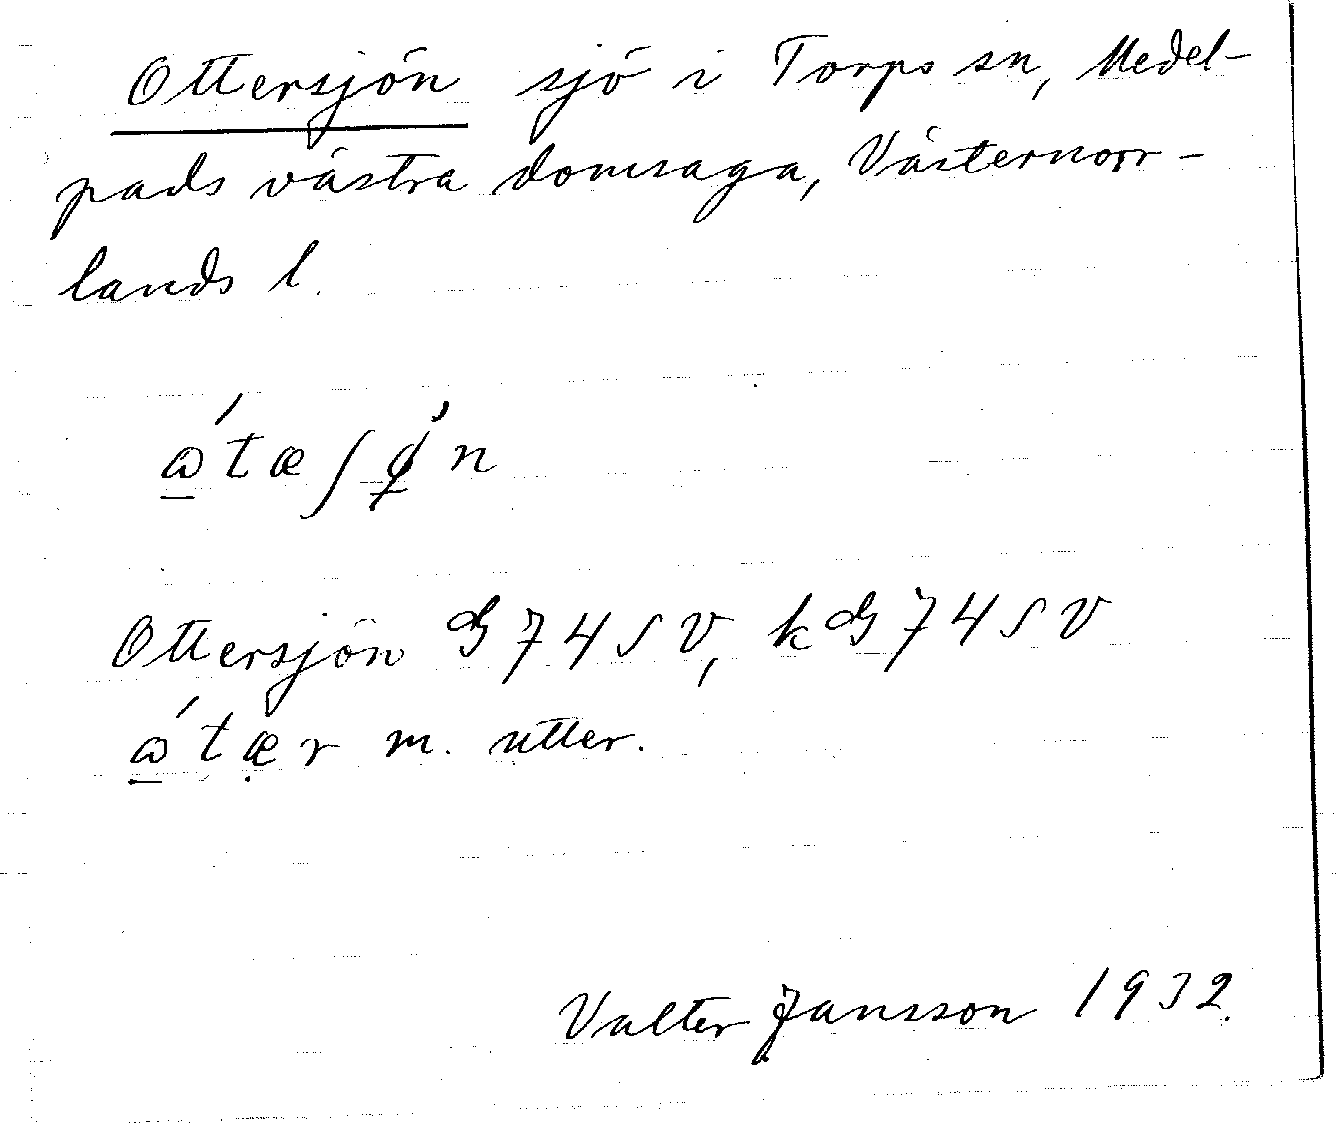 Ottersjön sjö i Torps sn, Medel-
pads västra domsaga, Västernorr-
lands l.
á̲tæʃø̀n
Ottersjön G74SV, kG74SV
á̲tær m. utter.
Valter Jansson 1932.